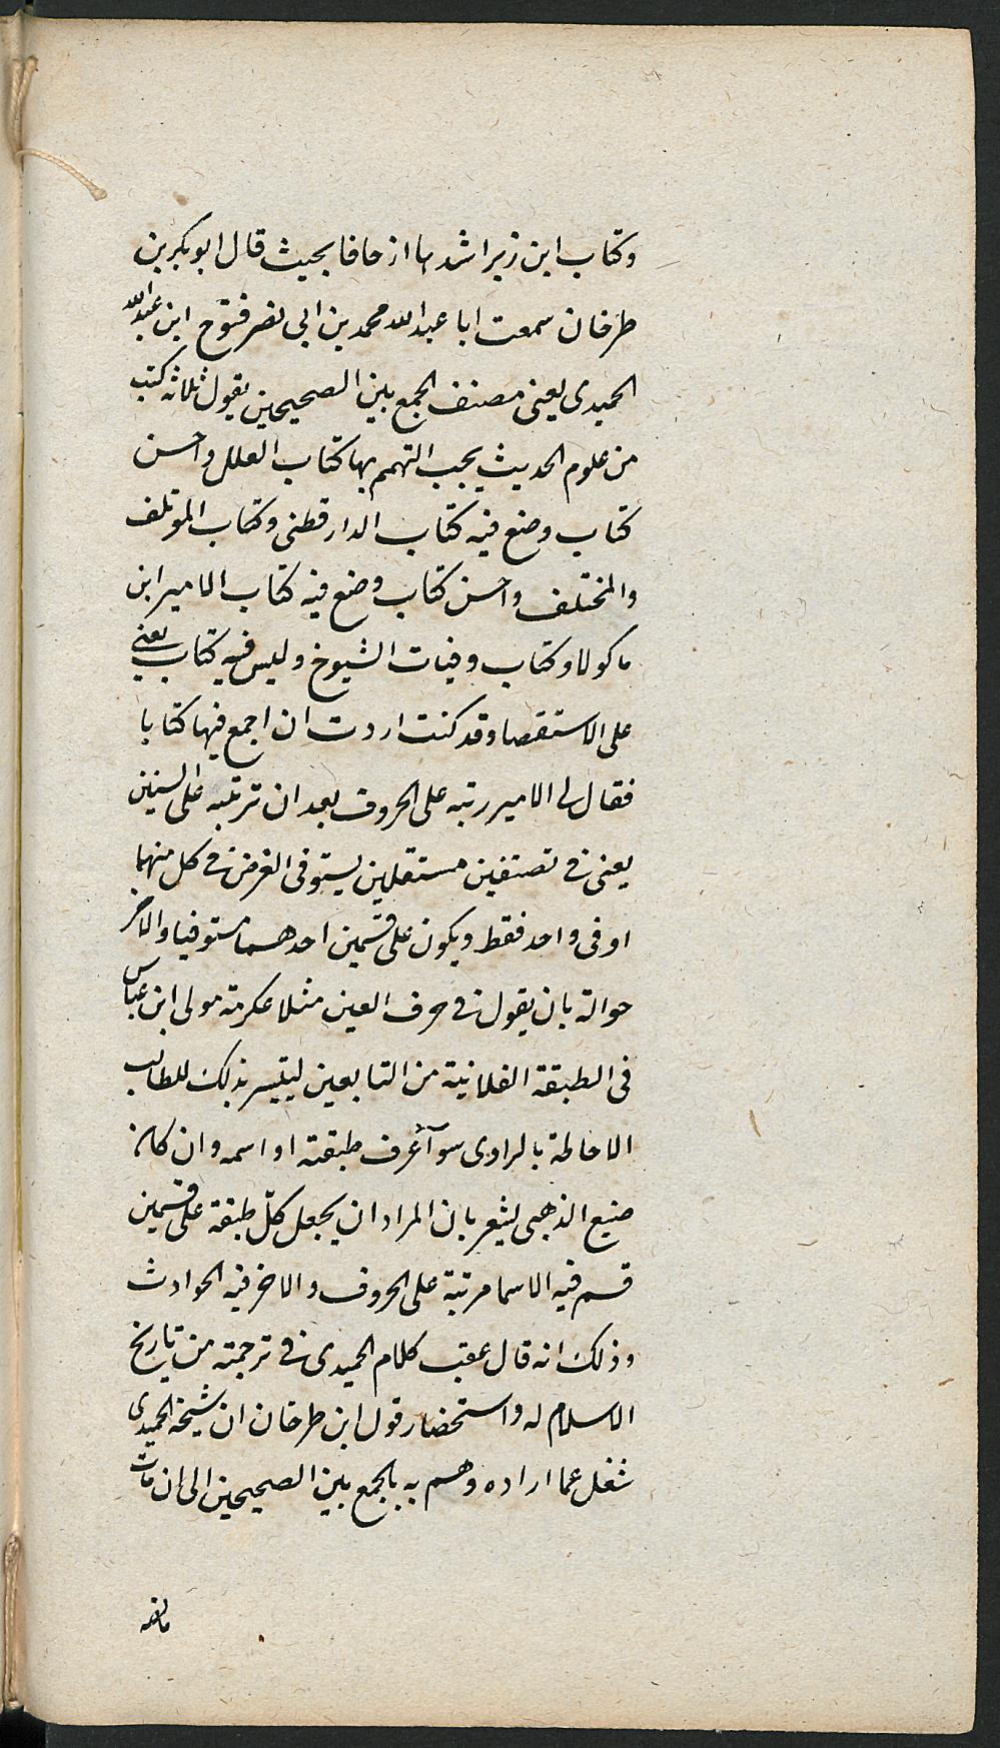 وكتاب ابن زبر اشدها ازحافا بحيث قال ابو بكر بن
طرخان سمعت ابا عبد الله محمد بن ابى نصر فتوح ابن عبد الله
الحميدى يعنى مصنف الجمع بين الصحيحين يقول ثلاثة كتب
من علوم الحديث يجب التهمم بها كتاب العلل واحسن
كتاب وضع فيه كتاب الدارقطنى وكتاب الموتلف
والمختلف واحسن كتاب وضع فيه كتاب الامير ابن
ماكولا وكتاب وفيات الشيوخ وليس فيه كتاب يعنى
على الاستقصا وقد كنت اردت ان اجمع فيها كتابا
فقال لى الامير رتبه على الحروف بعد ان ترتبه على السنين
يعنى فى تصنيفين مستقلين يستوفى الغرض فى كل منهما
او فى واحد فقط ويكون على قسمين احدهما مستوفيا والاخر
حوالة بان يقول فى حرف العين مثلا عكرمة مولى ابن عباس
فى الطبقة الفلانية من التابعين ليتيسر بذلك للطالب
الاحاطة بالراوى سوآ عرف طبقته او اسمه وان كان
صنيع الذهبى يشعر بان المراد ان يجعل كلّ طبقة على قسمين
قسم فيه الاسما مرتبة على الحروف والاخر فيه الحوادث
وذلك انه قال عقب كلام الحميدى فى ترجمته من تاريخ
الاسلام له واستحضار قول ابن طرخان ان شيخه الحميدى
شغل عما اراده وهم به بالجمع بين الصحيحين الى ان مات
مانصه